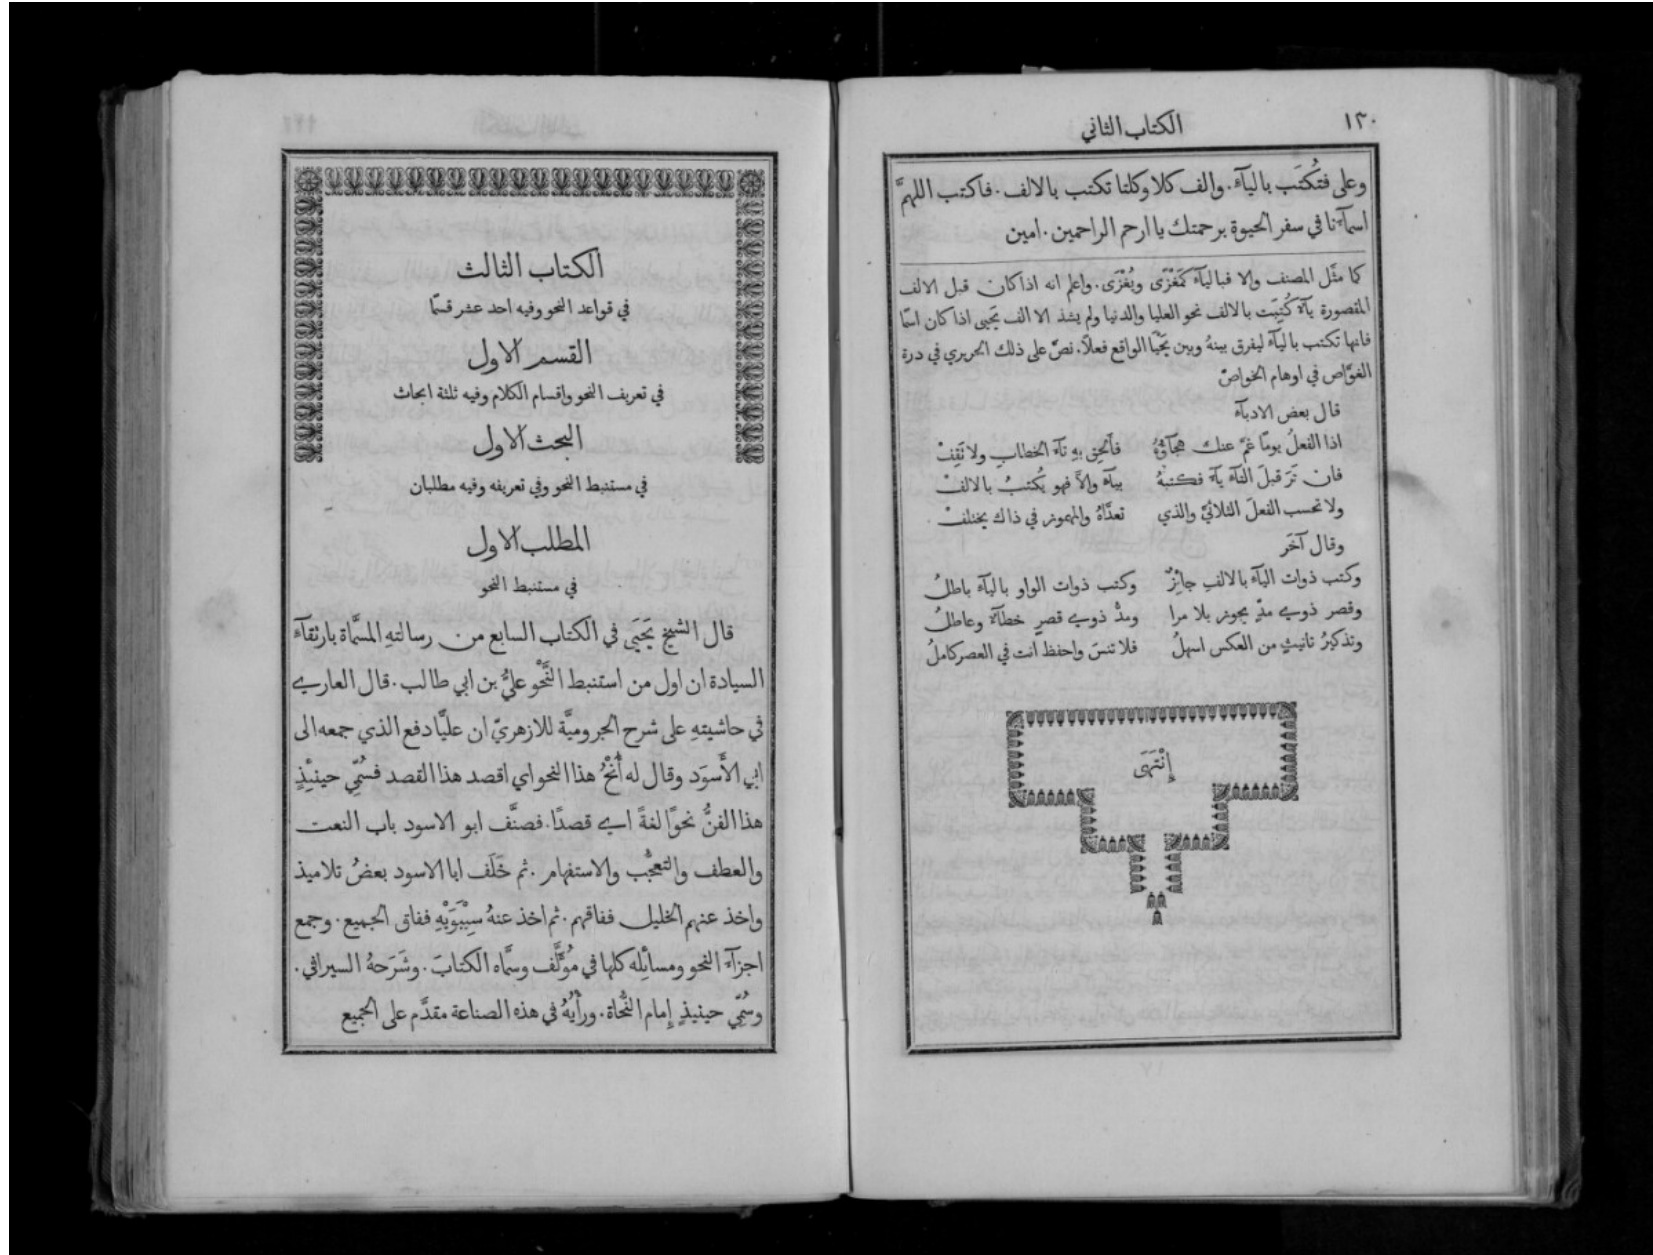 ١٣٠
الكتاب الثاني
وعلى فتُكتَب باليآء. والف كلا وكلتا تكتب بالالف. فاكتب اللهمَّ
اسمآءَنا في سفر الحيوة برحمتك يا ارحم الراحمين. امين
كما مثَّل المصنف والا فباليآء كَمَغْزَى ويُغْزَى. واعلم انه اذا كان قبل الالف
المقصورة يآءٌ كُتِبَت بالالف نحو العليا والدنيا ولم يشذ الا الف يَحيى اذا كان اسمًا
فانها تكتب باليآء ليفرق بينهُ وبين يَحْيَا الواقع فعلاً. نصَّ على ذلك الحريري في درة
الغوَّاص في اوهام الخواصّ
قال بعض الادبآء
اذا الفعلُ يومًا غمَّ عنك هجآؤُهُ فأَلحِق بهِ تآءَ الخطابِ ولا تَقِفْ
فان تَرَ قبلَ التآءِ يآءً فكتبهُ بيآءٍ والاَّ فهو يُكتبُ بالالفْ
ولا تحسب الفعلَ الثلاثيَّ والذي تعدَّاهُ والمهموز في ذاك يختلفْ
وقال آخَر
وكتب ذوات اليآء بالالفِ جائِزٌ وكتب ذوات الواو باليآء باطلُ
وقصر ذوي مدٍّ يجوز بلا مرا ومدُّ ذوي قصرٍ خطآءٌ وعاطلُ
وتذكيرُ تانيثٍ من العكس اسهلُ فلا تنسَ واحفظ انت في العصر كاملُ
إِنْتَهَى
الكتاب الثالث
في قواعد النحو وفيه احد عشر قسمًا
القسم الاول
في تعريف النحو واقسام الكلام وفيه ثلثة ابحاث
البحث الاول
في مستنبط النحو وفي تعريفه وفيه مطلبان
المطلب الاول
في مستنبط النحو
قال الشيخ يَحيَى في الكتاب السابع من رسالتهِ المسمَّاة بارتقآء
السيادة ان اول من استنبط النَّحْو عليُّ بن ابي طالب. قال العاري
في حاشيتهِ على شرح الجروميَّة للازهريّ ان عليًّا دفع الذي جمعه الى
ابي الأَسوَد وقال له أُنْحُ هذا النحو اي اقصد هذا القصد فسُمّي حينئِذٍ
هذا الفنُّ نحوًا لغةً اي قصدًا. فصنَّف ابو الاسود باب النعت
والعطف والتعجُّب والاستفهام. ثم خَلَف ابا الاسود بعضُ تلاميذ
واخذ عنهم الخليل ففاقهم. ثم اخذ عنهُ سِيْبَوَيْهِ ففاق الجميع. وجمع
اجزآءَ النحو ومسائِله كلها في مُؤَلَّف وسمَّاه الكتابَ. وشَرَحهُ السيرافي.
وسُمّي حينيذٍ إِمام النُّحاة. ورأْيُهُ في هذه الصناعة مقدَّم على الجميع